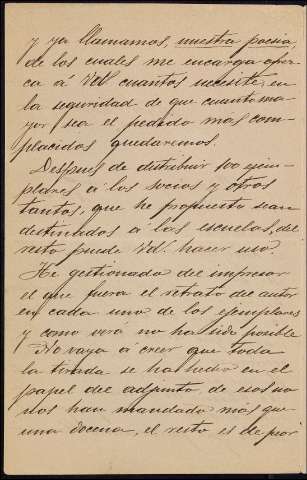 y ya llamamos, nuestra poesía
de los cuales me encarga ofrez
ca á Vd cuantos necesite, en
la seguridad de que cuanto ma
yor sea el pedido mas com-
placidos quedaremos.
Despues de distribuir 100 ejem
plares á los socios y otros
tantos, que he propuesto sean
destinados á las escuelas, del
resto puede Vd. hacer uso.
He gestionado del impresor
el que fuera el retrato del autor
en cada uno de los ejemplares
y como verá no ha sido posible
No vaya á creer que toda
la tirada se ha hecho en el
papel del adjunto, de esos no
nos han mandado más que
una docena, el resto es de peor